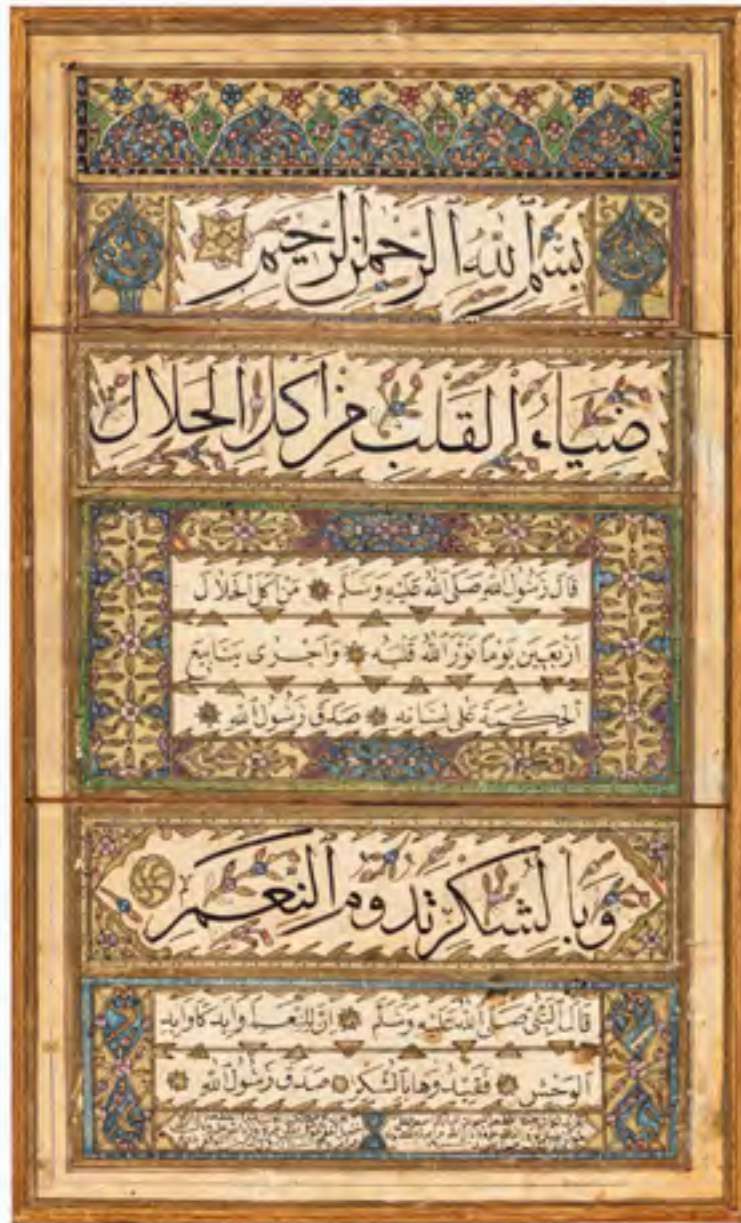 بسم الله الرحمن الرحيم
ضياء القلب من اكل الحلال
قال رسول الله صلى الله عليه وسلم من اكل الحلال
اربعين يوما نور الله قلبه واجرى ينابيع
الحكمة على لسانه صدق رسول الله
وبالشكر تدوم النعم
قال النبي صلى الله عليه وسلم ان للنعم اوابد كاوابد
الوحش فقيدوها بالشكر صدق رسول الله